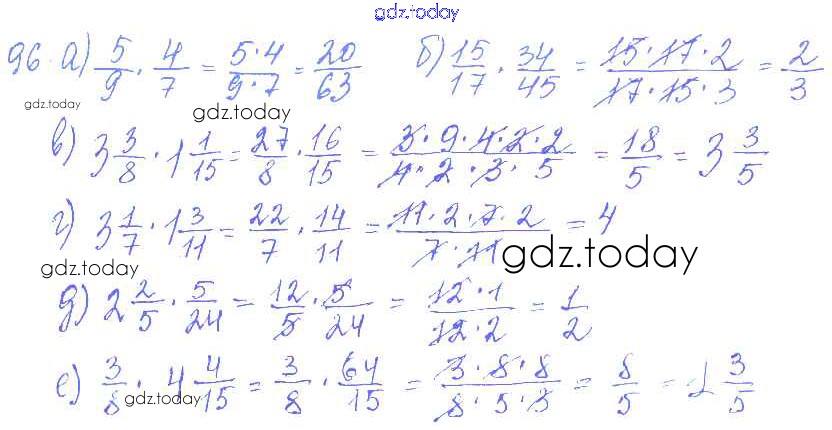 gdz.today
96. а) 5/9 · 4/7 = 5·4/9·7 = 20/63 б) 15/17 · 34/45 = 15·17·2/17·15·3 = 2/3
gdz.today gdz.today
в) 3 3/8 · 1 1/15 = 27/8 · 16/15 = 3·9·4·2·2/4·2·3·5 = 18/5 = 3 3/5
г) 3 1/7 · 1 3/11 = 22/7 · 14/11 = 11·2·7·2/7·11 = 4
gdz.today gdz.today
д) 2 2/5 · 5/24 = 12/5 · 5/24 = 12·1/12·2 = 1/2
е) 3/8 · 4 4/15 = 3/8 · 64/15 = 3·8·8/8·5·3 = 8/5 = 1 3/5
gdz.today